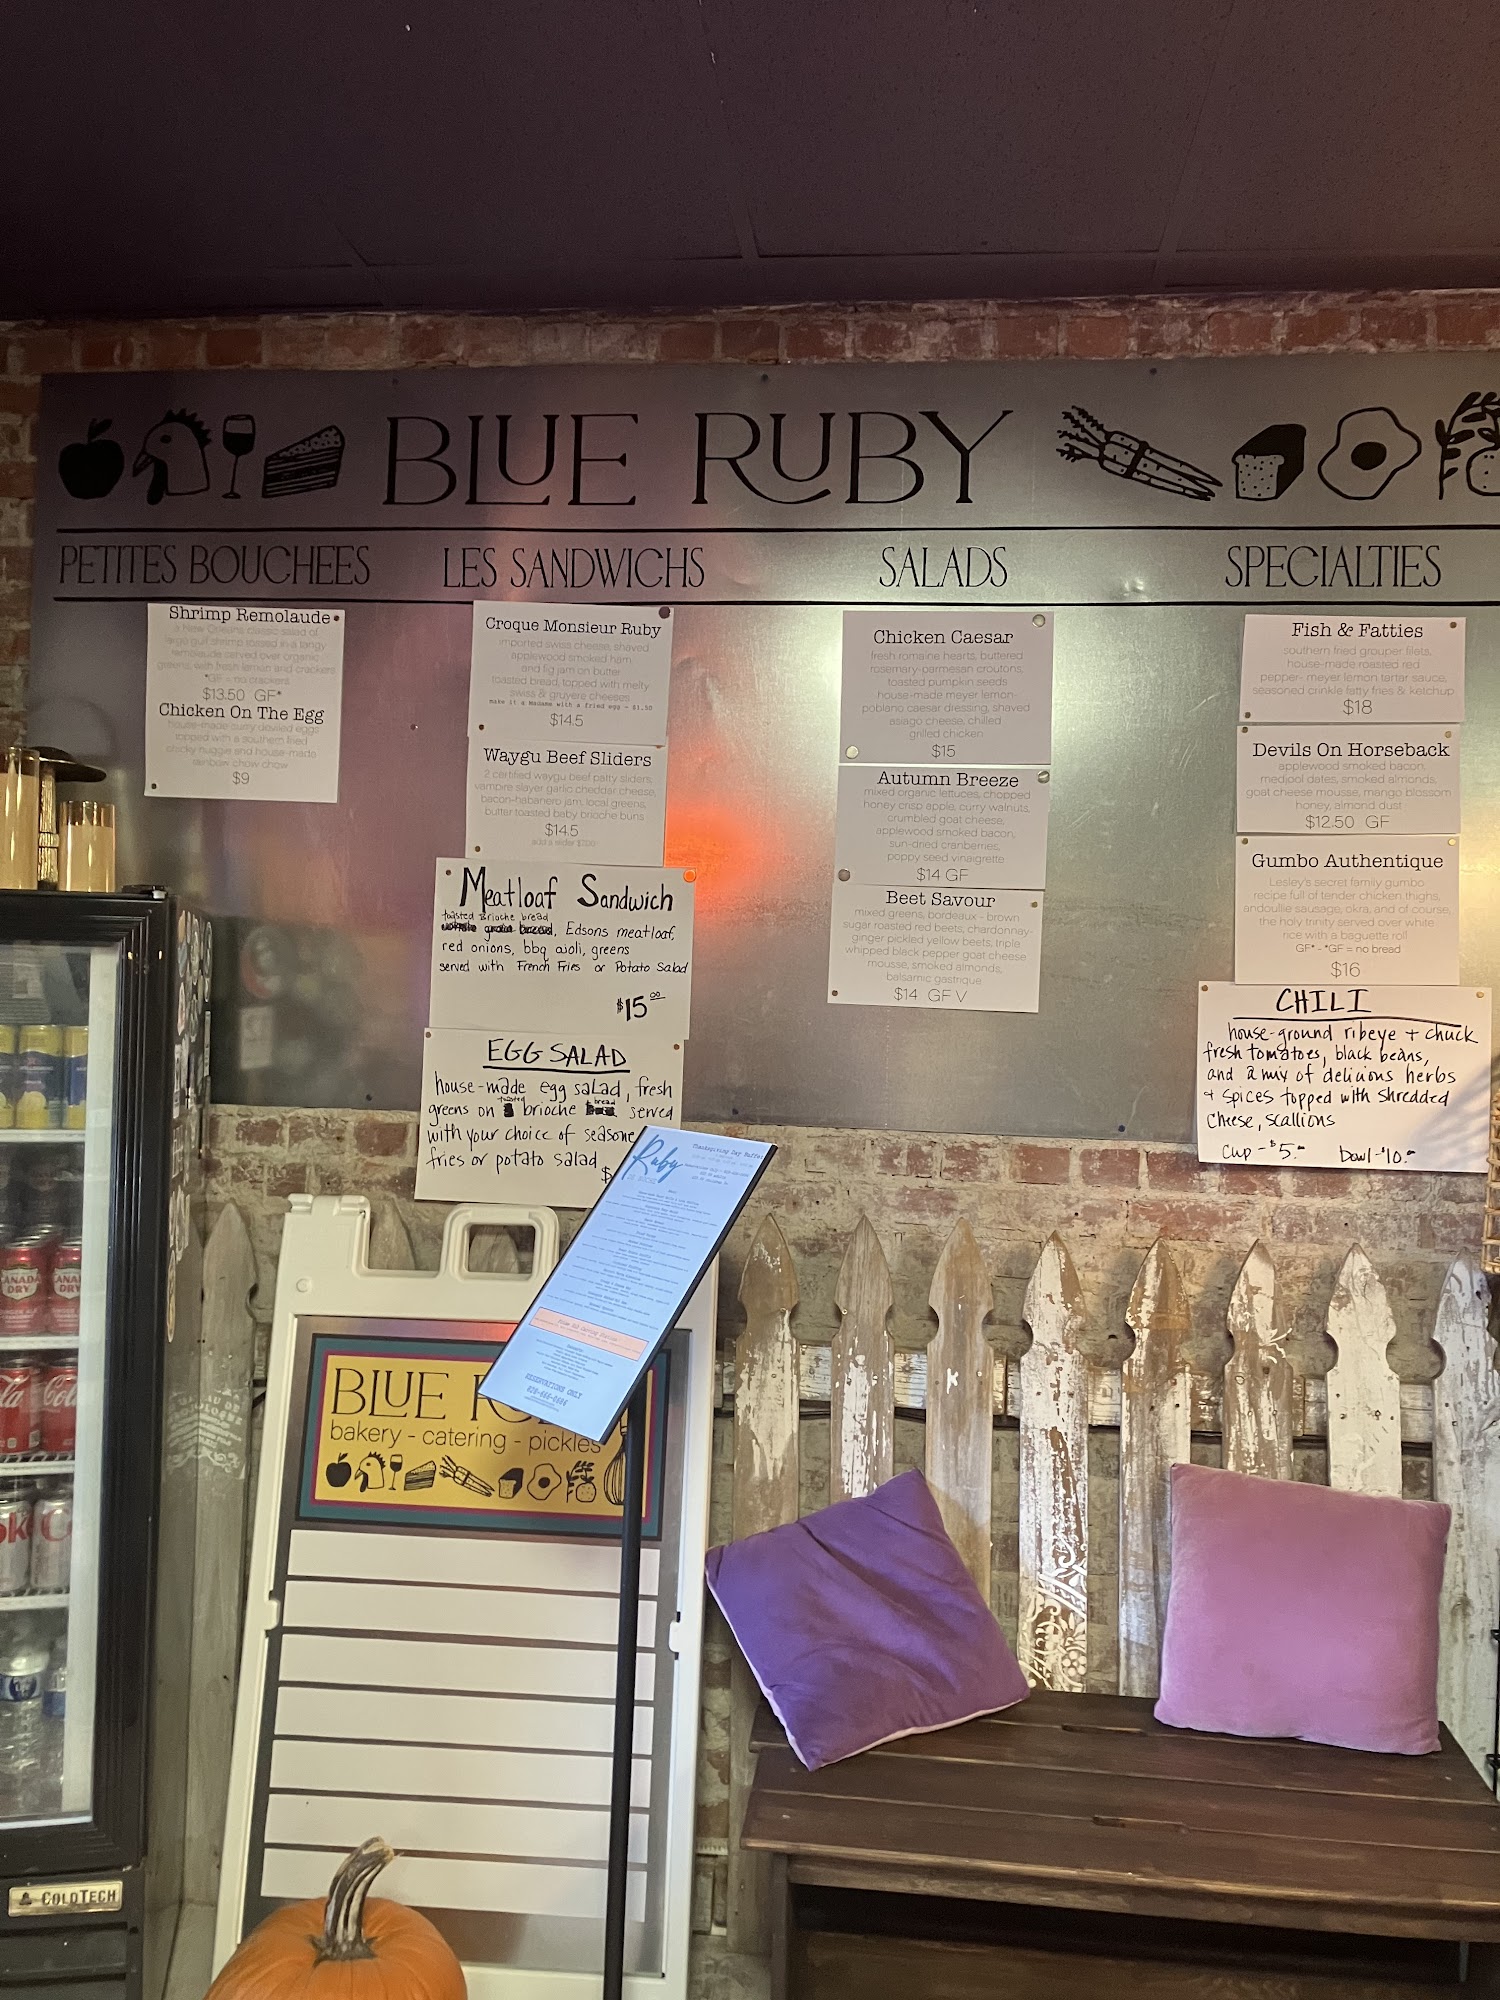 BLUE RUBY
PETITES BOUCHEES
Shrimp Remolaude
a New Orleans classic salad of
large gulf shrimp tossed in a tangy
remolaude served over organic
greens, with fresh lemon and crackers
*GF = no crackers
$13.50 GF*
Chicken On The Egg
house-made curry deviled eggs
topped with a southern fried
chicky nuggie and house-made
rainbow chow chow
$9
LES SANDWICHS
Croque Monsieur Ruby
imported swiss cheese, shaved
applewood smoked ham
and fig jam on butter
toasted bread, topped with melty
swiss & gruyere cheeses
make it a Madame with a fried egg - $1.50
$14.5
Waygu Beef Sliders
2 certified waygu beef patty sliders,
vampire slayer garlic cheddar cheese,
bacon-habanero jam, local greens,
butter toasted baby brioche buns
$14.5
add a slider $7.00
Meatloaf Sandwich
toasted Brioche bread
Edsons meatloaf,
red onions, bbq aioli, greens
served with French Fries or Potato Salad
$15.00
EGG SALAD
house-made egg salad, fresh
greens on toasted brioche bread served
with your choice of seasone
fries or potato salad
$
SALADS
Chicken Caesar
fresh romaine hearts, buttered
rosemary-parmesan croutons,
toasted pumpkin seeds
house-made meyer lemon-
poblano caesar dressing, shaved
asiago cheese, chilled
grilled chicken
$15
Autumn Breeze
mixed organic lettuces, chopped
honey crisp apple, curry walnuts,
crumbled goat cheese,
applewood smoked bacon,
sun-dried cranberries,
poppy seed vinaigrette
$14 GF
Beet Savour
mixed greens, bordeaux - brown
sugar roasted red beets, chardonnay-
ginger pickled yellow beets, triple
whipped black pepper goat cheese
mousse, smoked almonds,
balsamic gastrique
$14 GF V
SPECIALTIES
Fish & Fatties
southern fried grouper filets,
house-made roasted red
pepper- meyer lemon tartar sauce,
seasoned crinkle fatty fries & ketchup
$18
Devils On Horseback
applewood smoked bacon,
medjool dates, smoked almonds,
goat cheese mousse, mango blossom
honey, almond dust
$12.50 GF
Gumbo Authentique
Lesley's secret family gumbo
recipe full of tender chicken thighs,
andouille sausage, okra, and of course,
the holy trinity served over white
rice with a baguette roll
GF* - *GF = no bread
$16
CHILI
house-ground ribeye + chuck
fresh tomatoes, black beans,
and a mix of delicious herbs
+ spices topped with shredded
cheese, scallions
Cup - $5.00 bowl - $10.00
Ruby
Thanksgiving Day Buffet
RESERVATIONS ONLY
BLUE
bakery - catering - pickles
CANADA
DRY
CANADA
DRY
GINGER ALE
COLDTECH